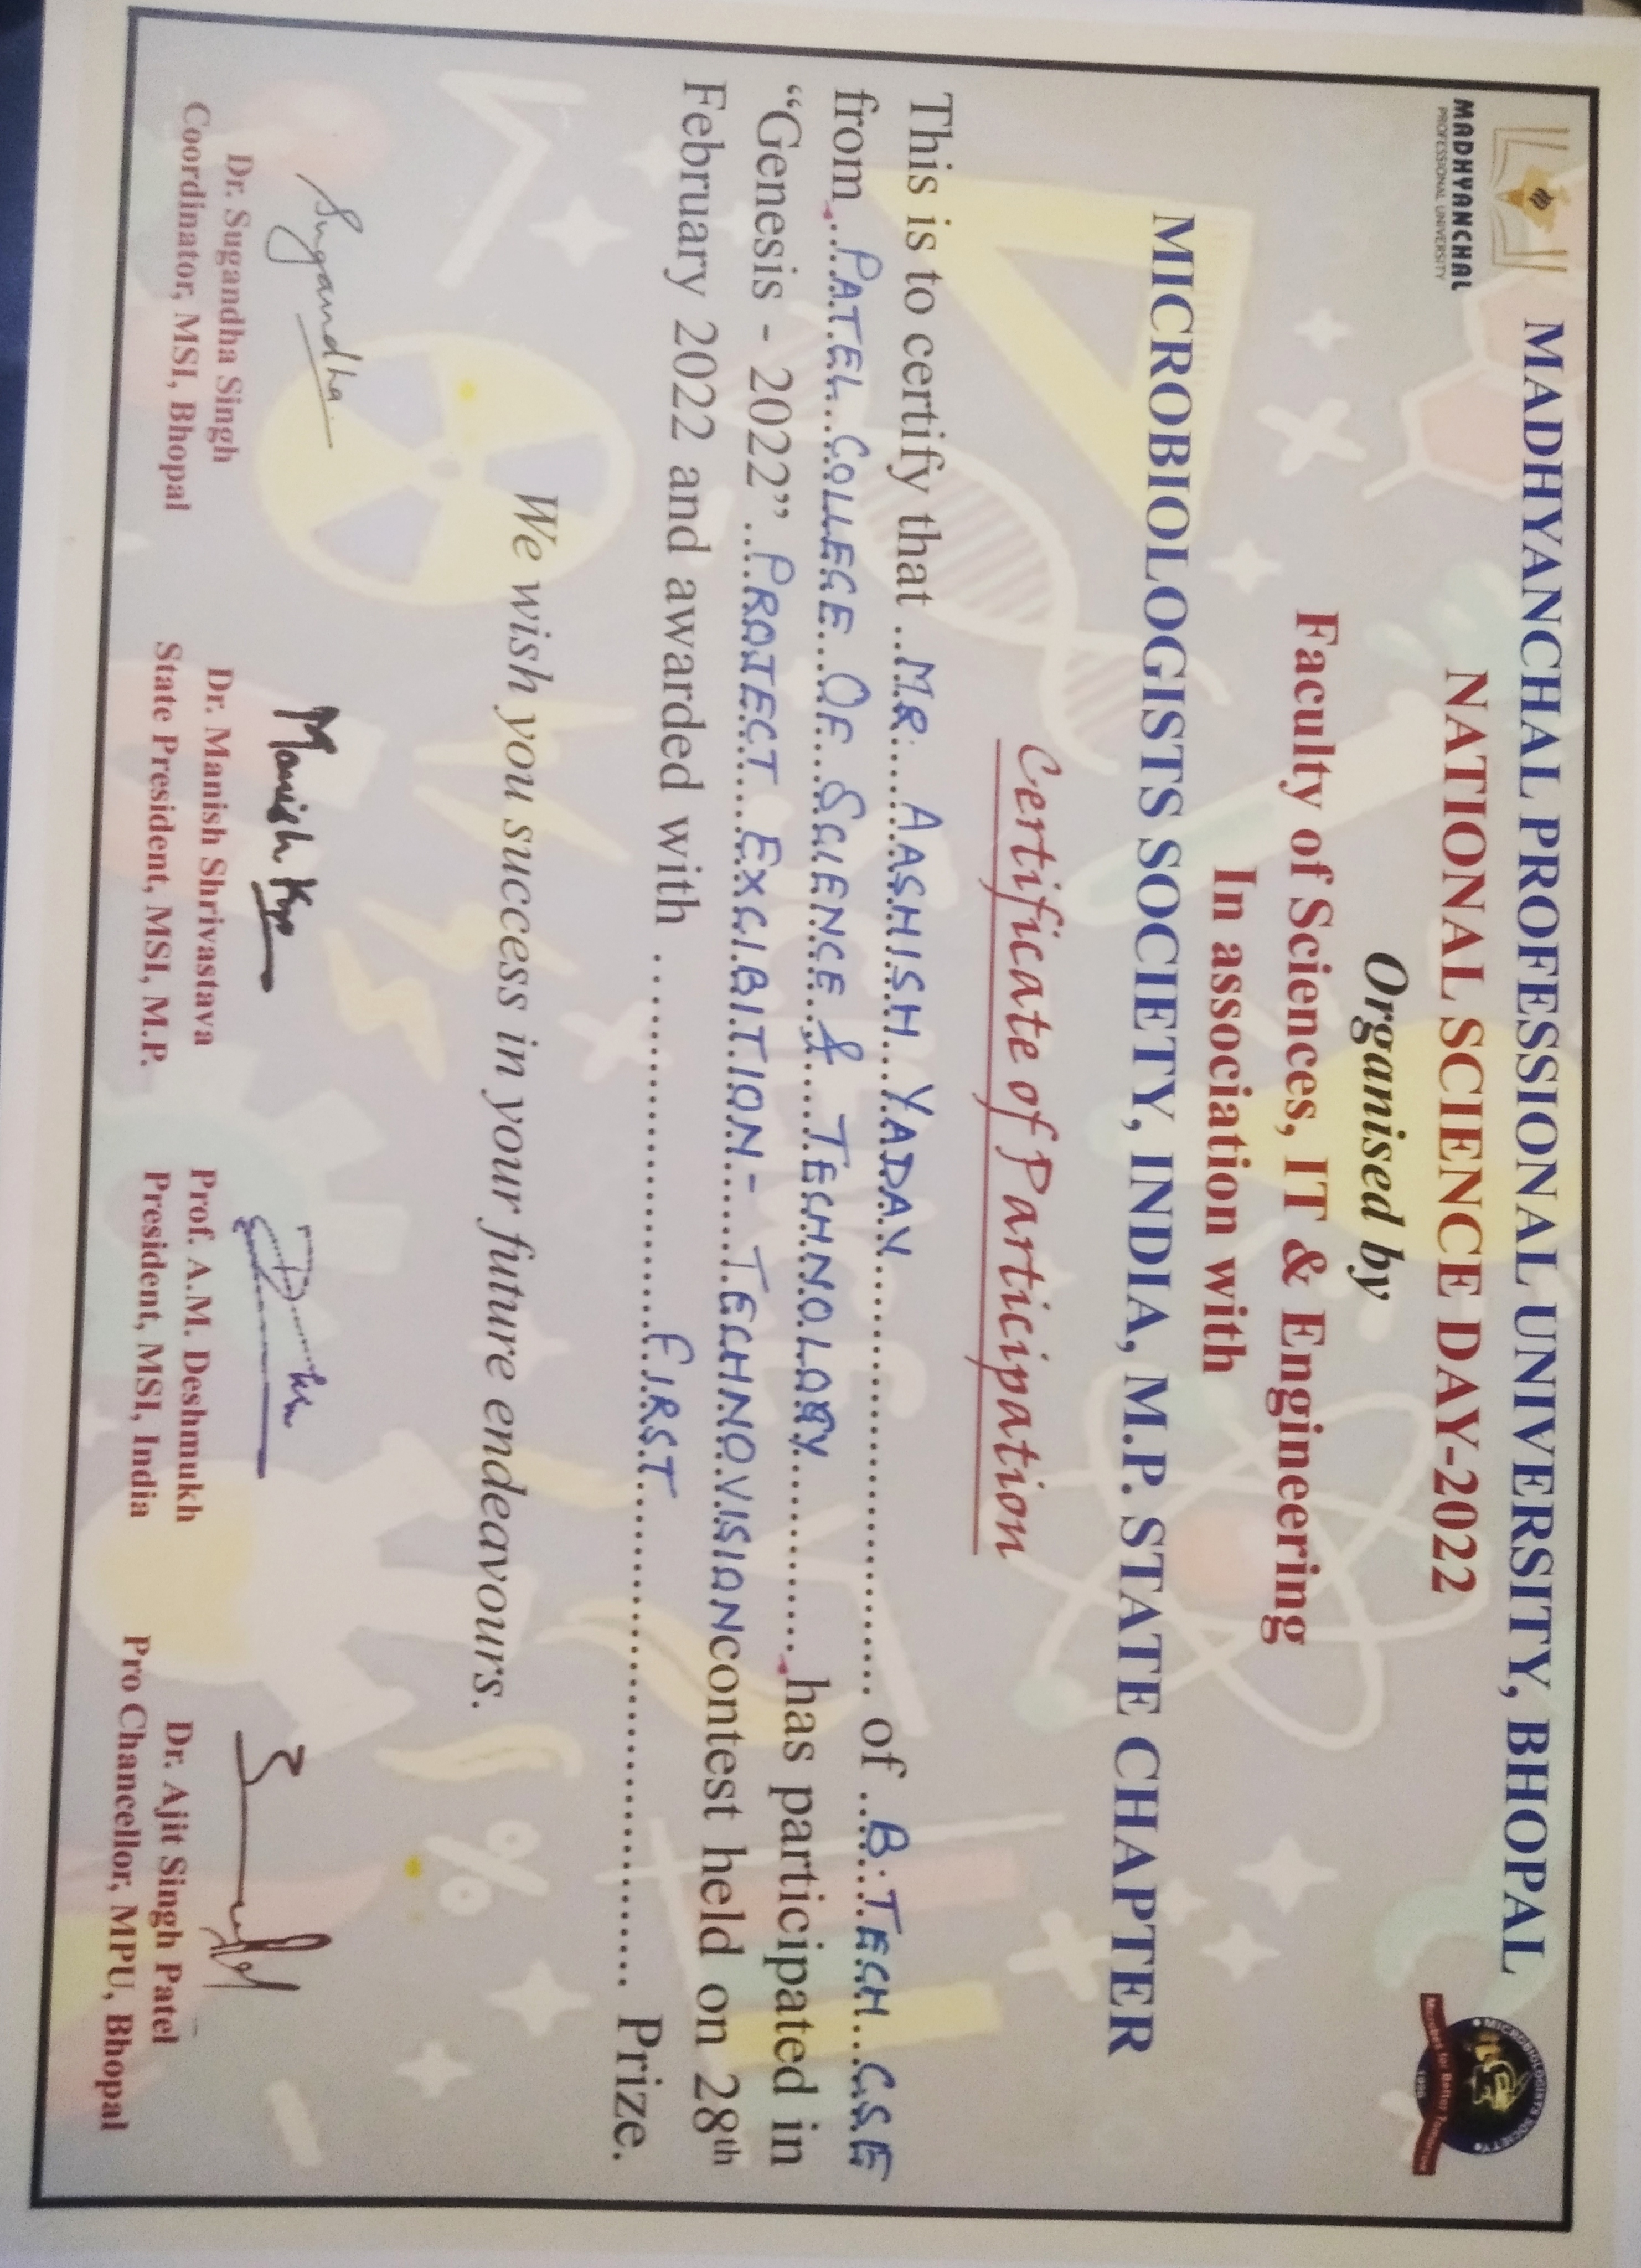 MADHYANCHAL
PROFESSIONAL UNIVERSITY
MADHYANCHAL PROFESSIONAL UNIVERSITY, BHOPAL
MICROBIOLOGISTS SOCIETY
Microbes for Better Tomorrow
1996
NATIONAL SCIENCE DAY-2022
Organised by
Faculty of Sciences, IT & Engineering
In association with
MICROBIOLOGISTS SOCIETY, INDIA, M.P. STATE CHAPTER
Certificate of Participation
This is to certify that MR. AASHISH YADAV of B.TECH CSE
from PATEL COLLEGE OF SCIENCE & TECHNOLOGY has participated in
“Genesis - 2022” PROJECT EXCIBITION - TECHNOVISION contest held on 28th
February 2022 and awarded with FIRST Prize.
We wish you success in your future endeavours.
Sugandha
Manish
Dr. Sugandha Singh
Coordinator, MSI, Bhopal
Dr. Manish Shrivastava
State President, MSI, M.P.
Prof. A.M. Deshmukh
President, MSI, India
Dr. Ajit Singh Patel
Pro Chancellor, MPU, Bhopal